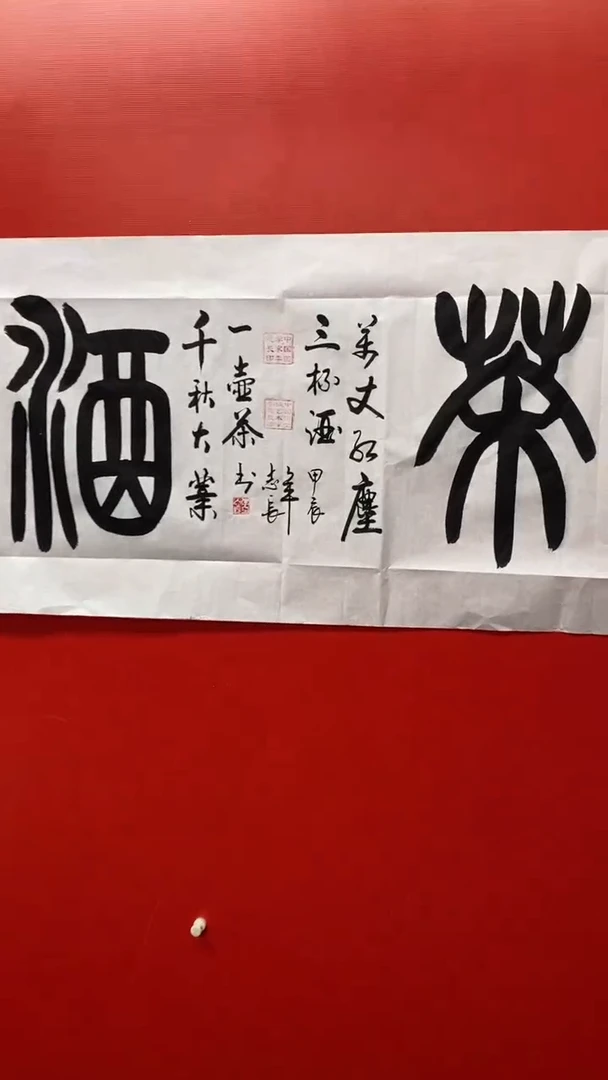 茶
萬丈紅塵
三杯酒
甲辰
年
志長
千秋大業
一壺茶
书
酒